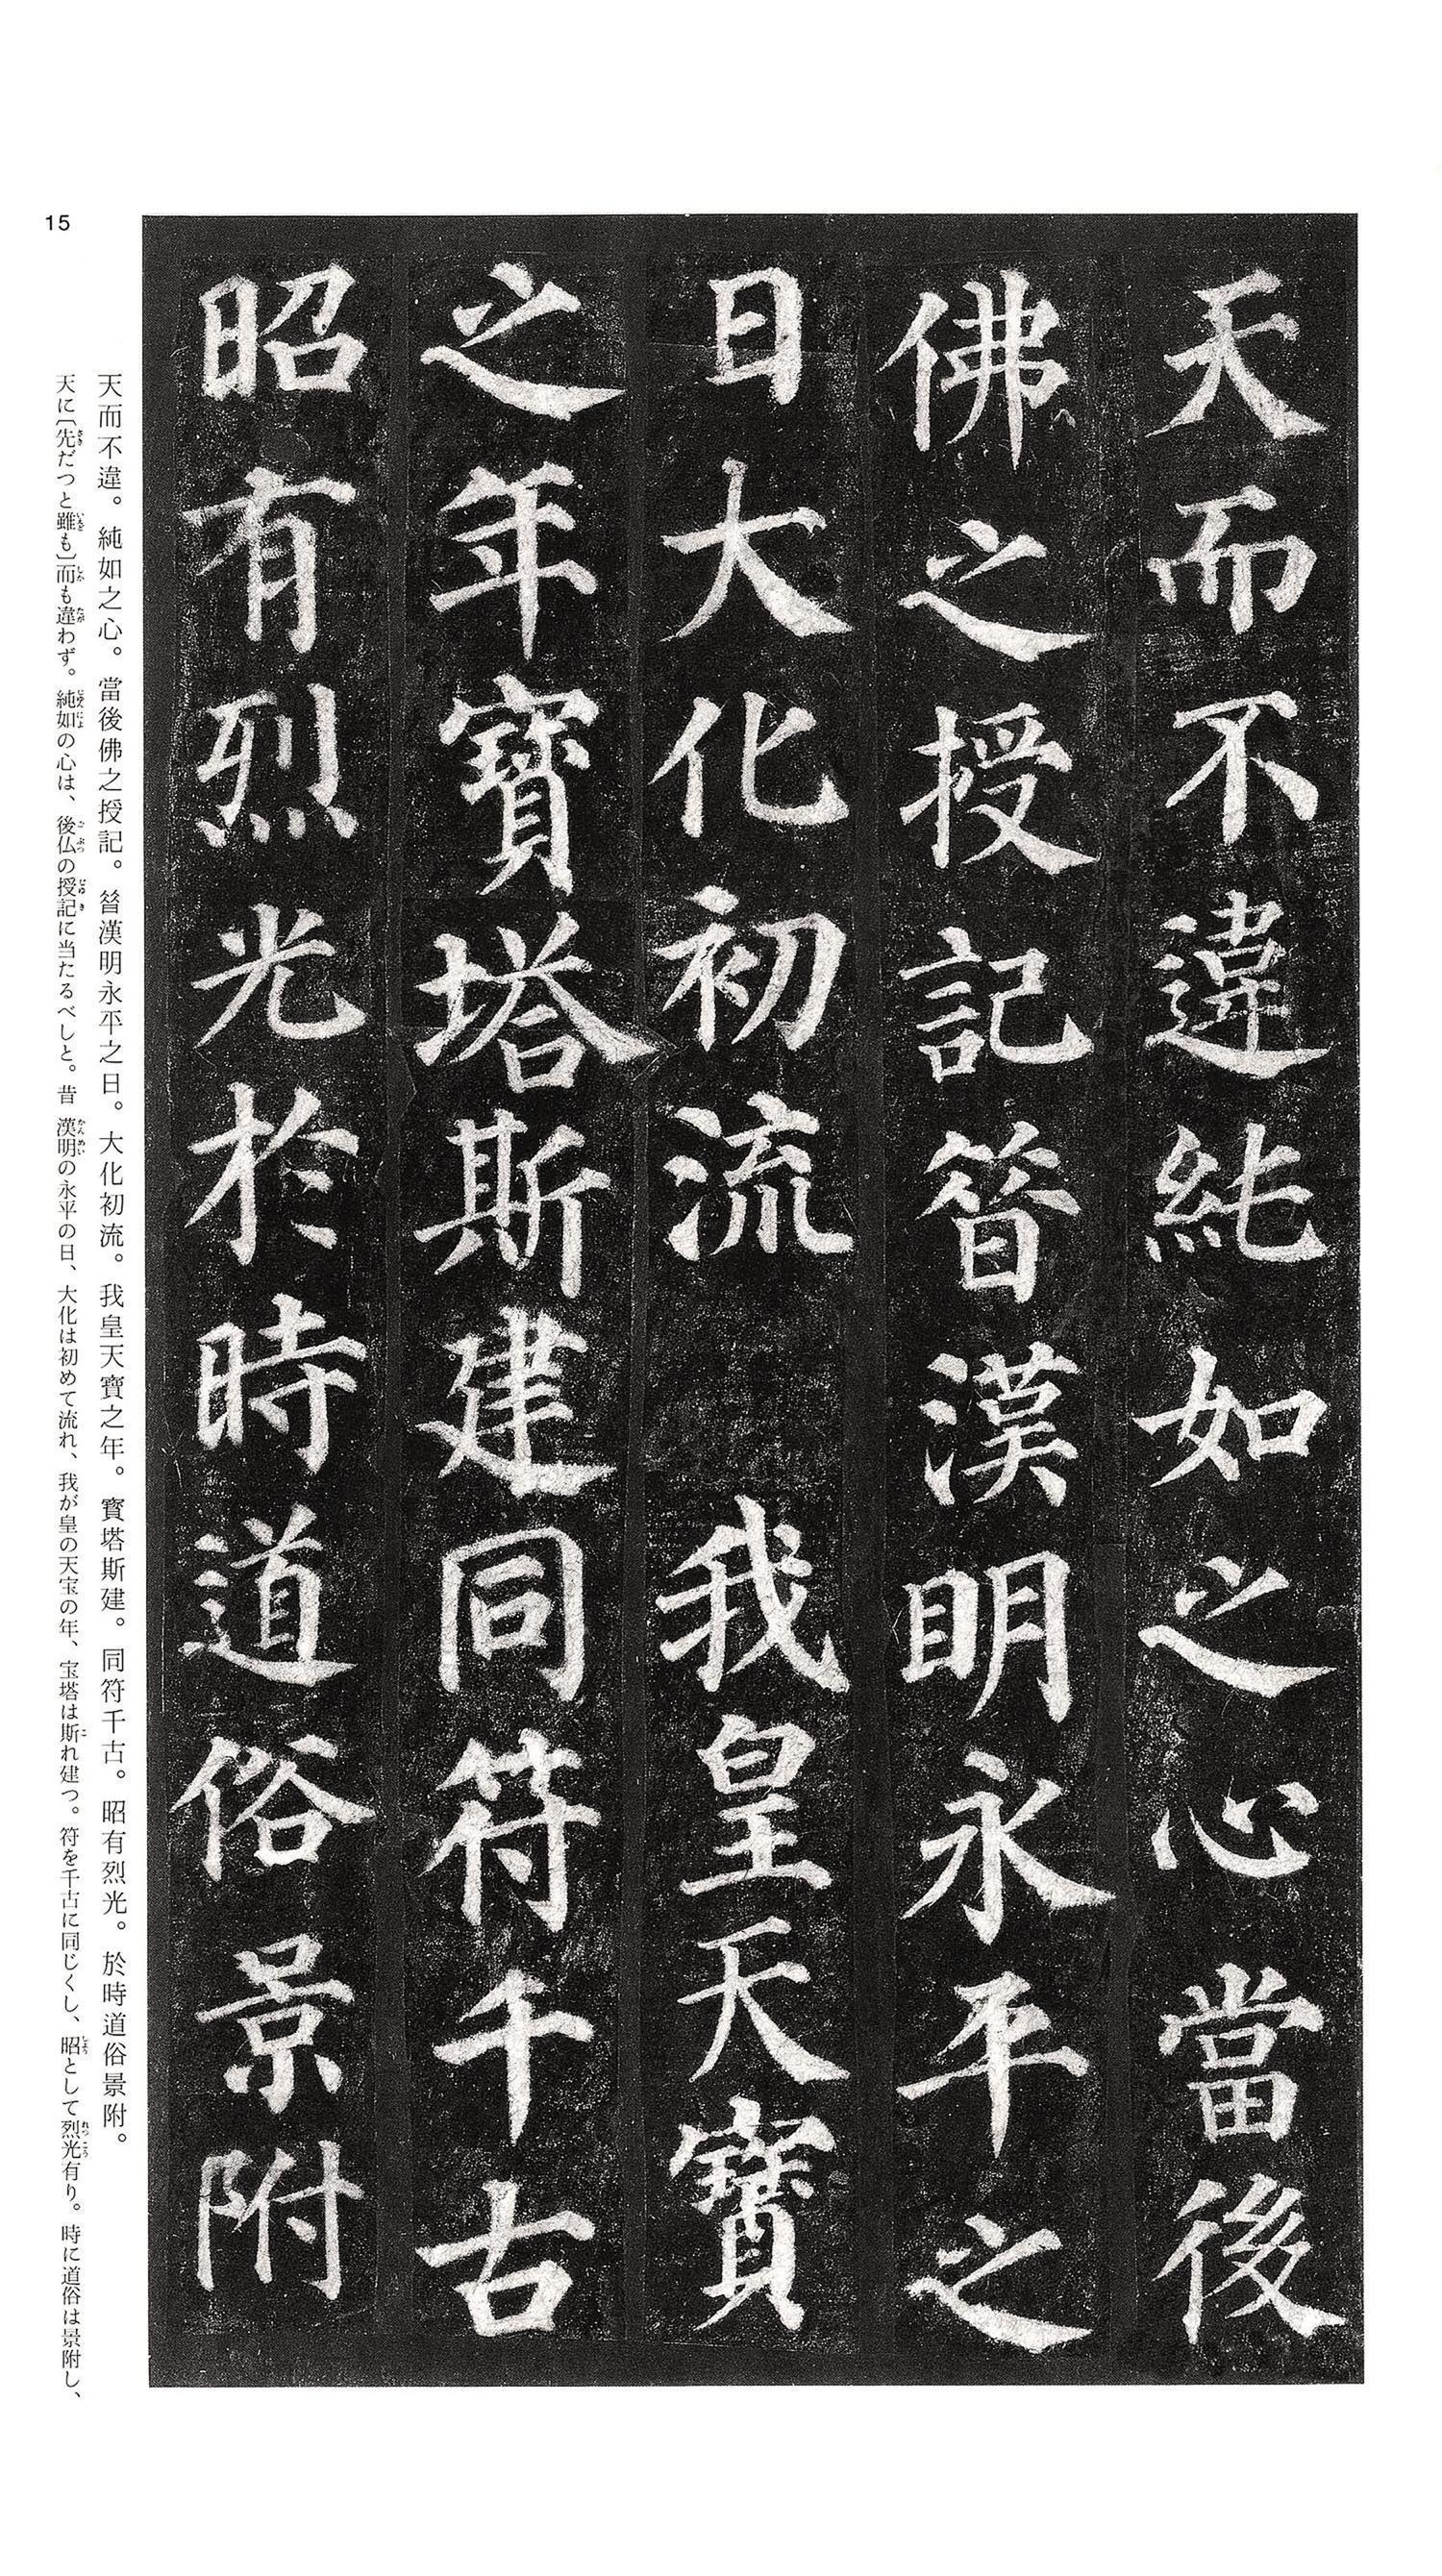 天而不違純如之心當後
佛之授記昝漢明永平之
日大化初流我皇天寶
之年寶塔斯建同符千古
昭有烈光於時道俗景附
天而不違。純如之心。當後佛之授記。昝漢明永平之日。大化初流。我皇天寶之年。寶塔斯建。同符千古。昭有烈光。於時道俗景附。
天に〔先だつと雖も〕而も違わず。純如の心は、後仏の授記に当たるべしと。昔漢明の永平の日、大化は初めて流れ、我が皇の天宝の年、宝塔は斯れ建つ。符を千古に同じくし、昭として烈光有り。時に道俗は景附し、
15